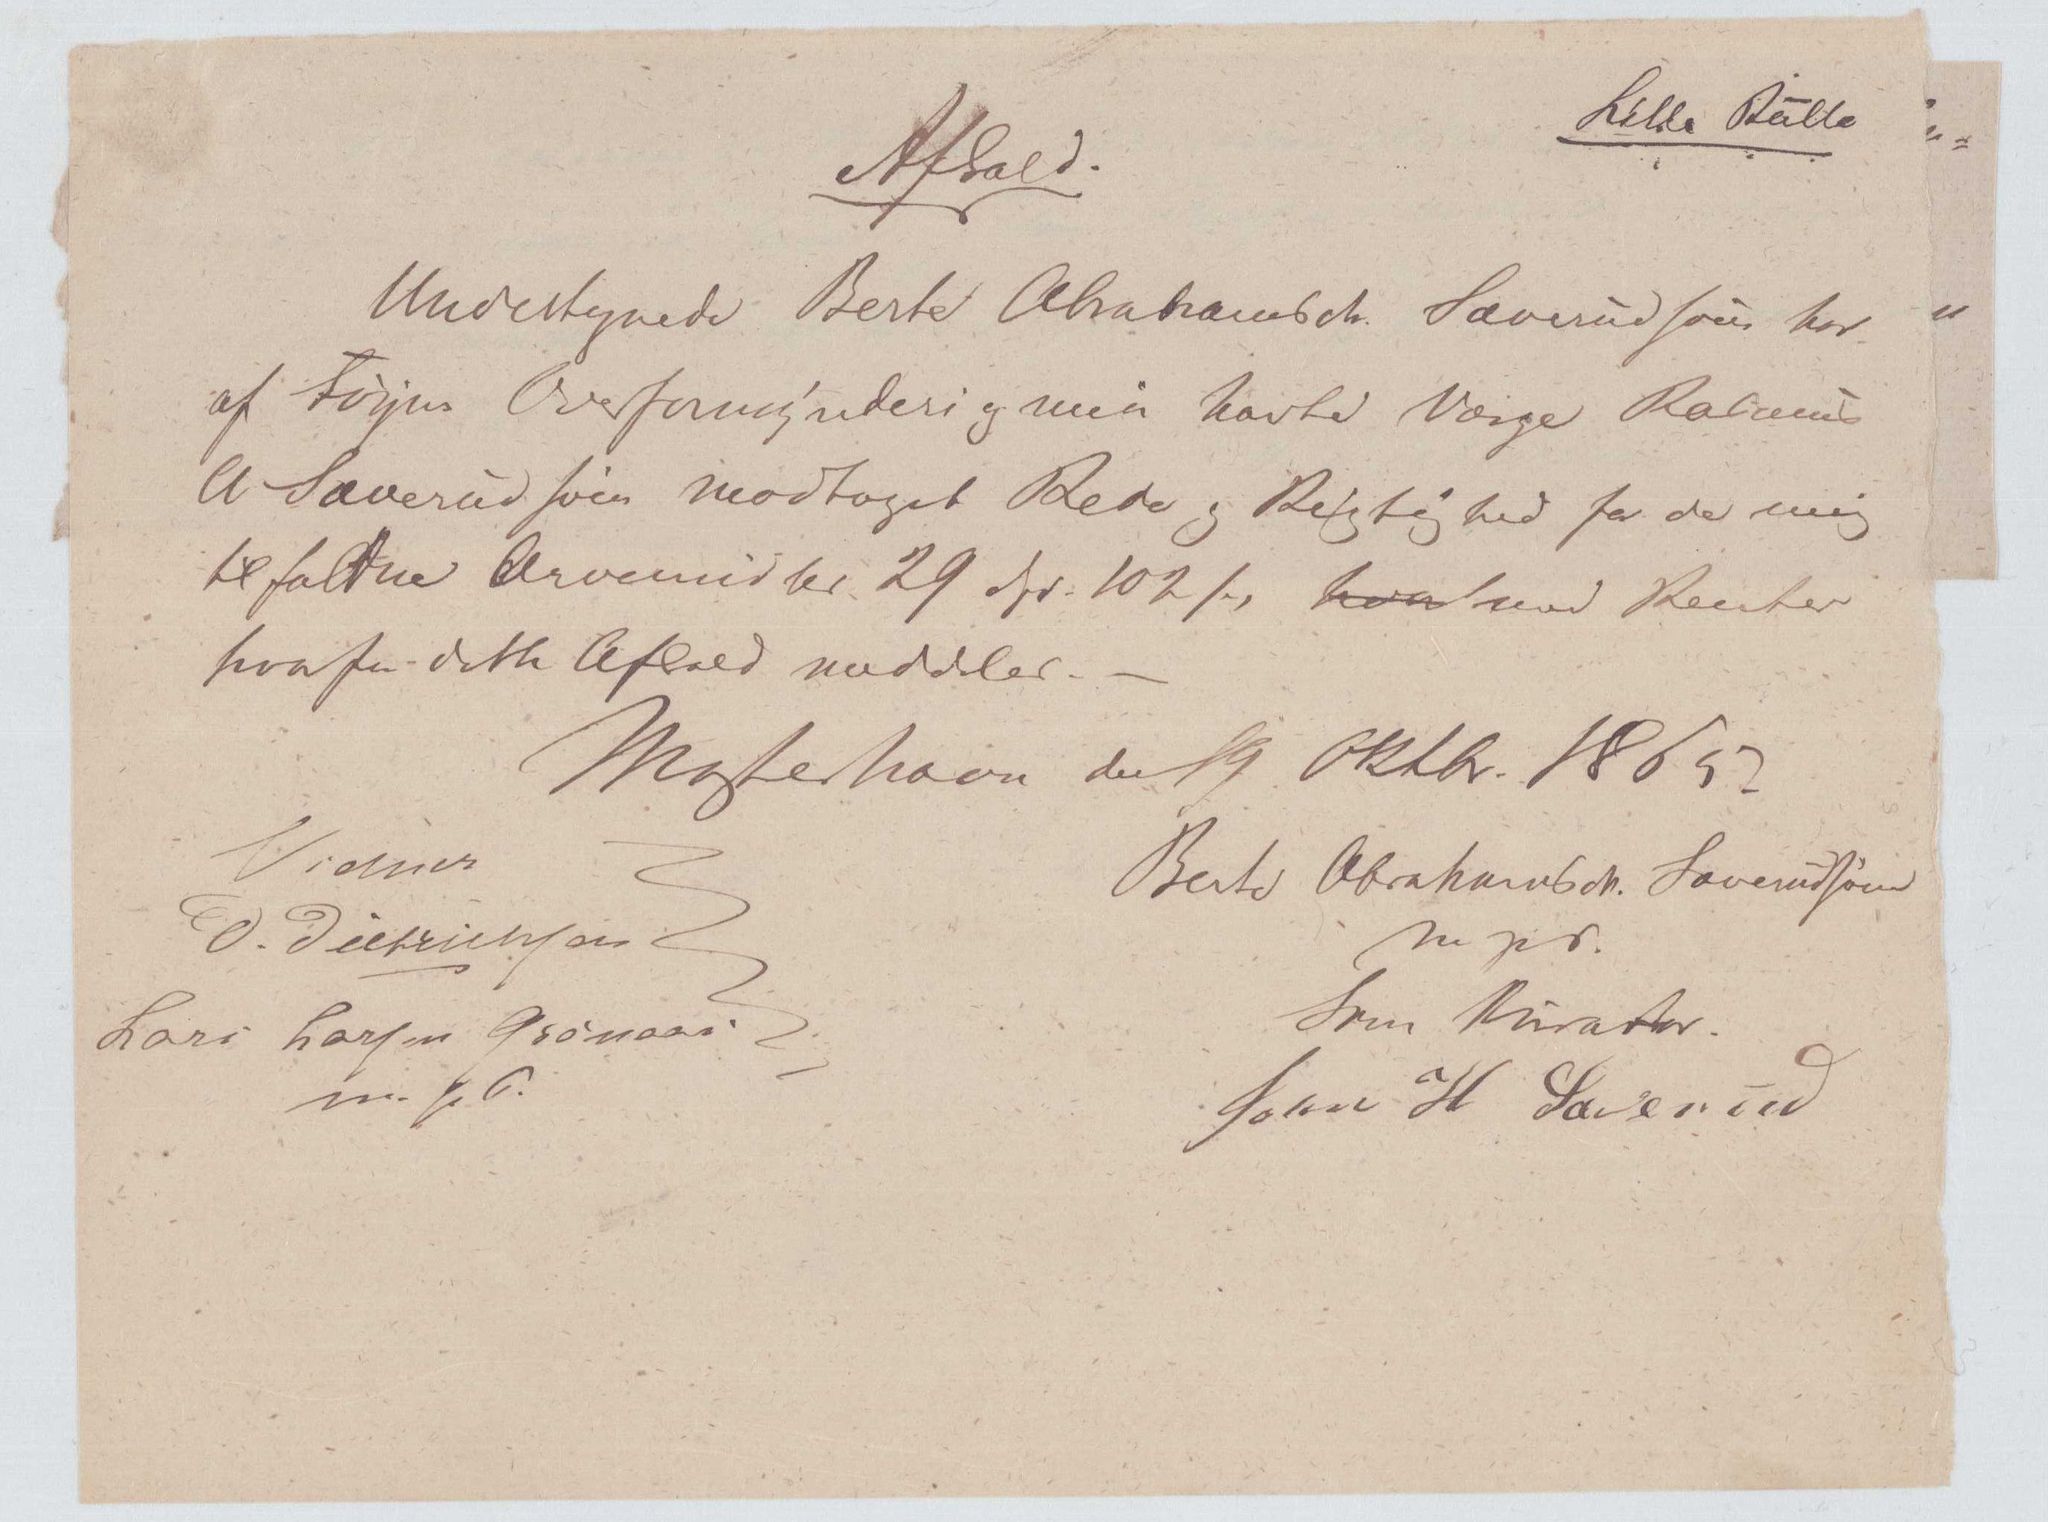 Lille Bülte
Afkald.
Undertegnede Berte Abrahamsdtr. Saverudsøen har
af Föyns Overformynderi og min havte Værge Rasmus
A Saverudsøen modtaget Rede og Rigtighed for de mig
tilfaldne Arvemidler 29 Spd. 102 s, hvor med Renter
hvorfor dette Afkald meddeles. —
Mosterhavn den 19 Oktbr. 1865
Berte Abrahamsdtr. Saverudsøen
m. p. r.
Som Kurator.
John H Saverud
Vidner
D. Dietrichsen
Lars Larsen Grönaas
m. p. r.